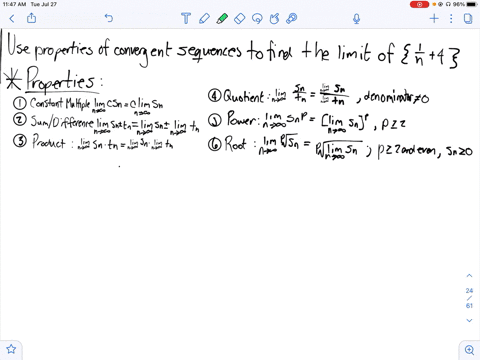 11:47 AM Tue Jul 27
96%
Use properties of convergent sequences to find the limit of {1/n + 4}
* Properties:
① Constant Multiple lim n→∞ CSn = C lim n→∞ Sn
② Sum/Difference lim n→∞ Sn ± tn = lim n→∞ Sn ± lim n→∞ tn
③ Product: lim n→∞ Sn · tn = lim n→∞ Sn · lim n→∞ tn
④ Quotient: lim n→∞ Sn/tn = lim n→∞ Sn / lim n→∞ tn, denominator ≠ 0
⑤ Power: lim n→∞ Sn^p = [lim n→∞ Sn]^p, p ≥ 2
⑥ Root: lim n→∞ p√Sn = p√lim n→∞ Sn ; p ≥ 2 and even, Sn ≥ 0
24
/
61